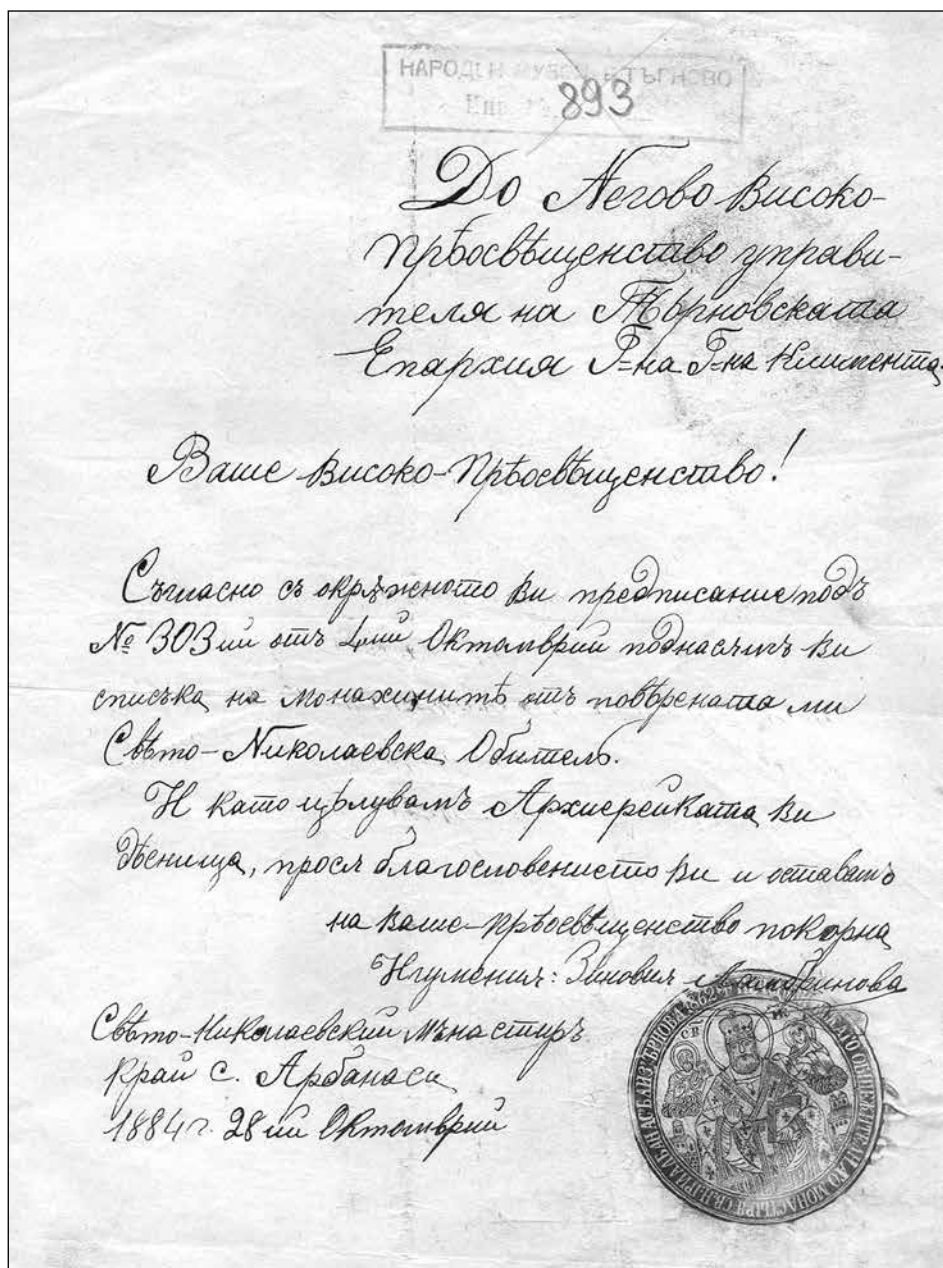 НАРОДЕН МУЗЕЙ В ТЪРНОВО
Инв. №
893
До Негово Високо-
прѣосвѣщенство управи-
теля на Тѫрновската
Епархия Г-на Г-на Климента.
Ваше Високо-Прѣосвѣщенство!
Съгласно съ окрѫжното Ви предписание подъ
№ 303ий отъ 4ий Октомврий поднасямъ Ви
списъка на монахинитѣ отъ повѣрената ми
Свѣто-Николаевска Обитель.
И като цѣлувамъ Архиерейката Ви
Дѣсница, прося благословението Ви и оставамъ
на Ваше-прѣосвѣщенство покорна
Игумения: Зиновия
Свѣто-Николаевский мънастиръ
край с. Арбанаси
1884 г. 28ий Октомврий